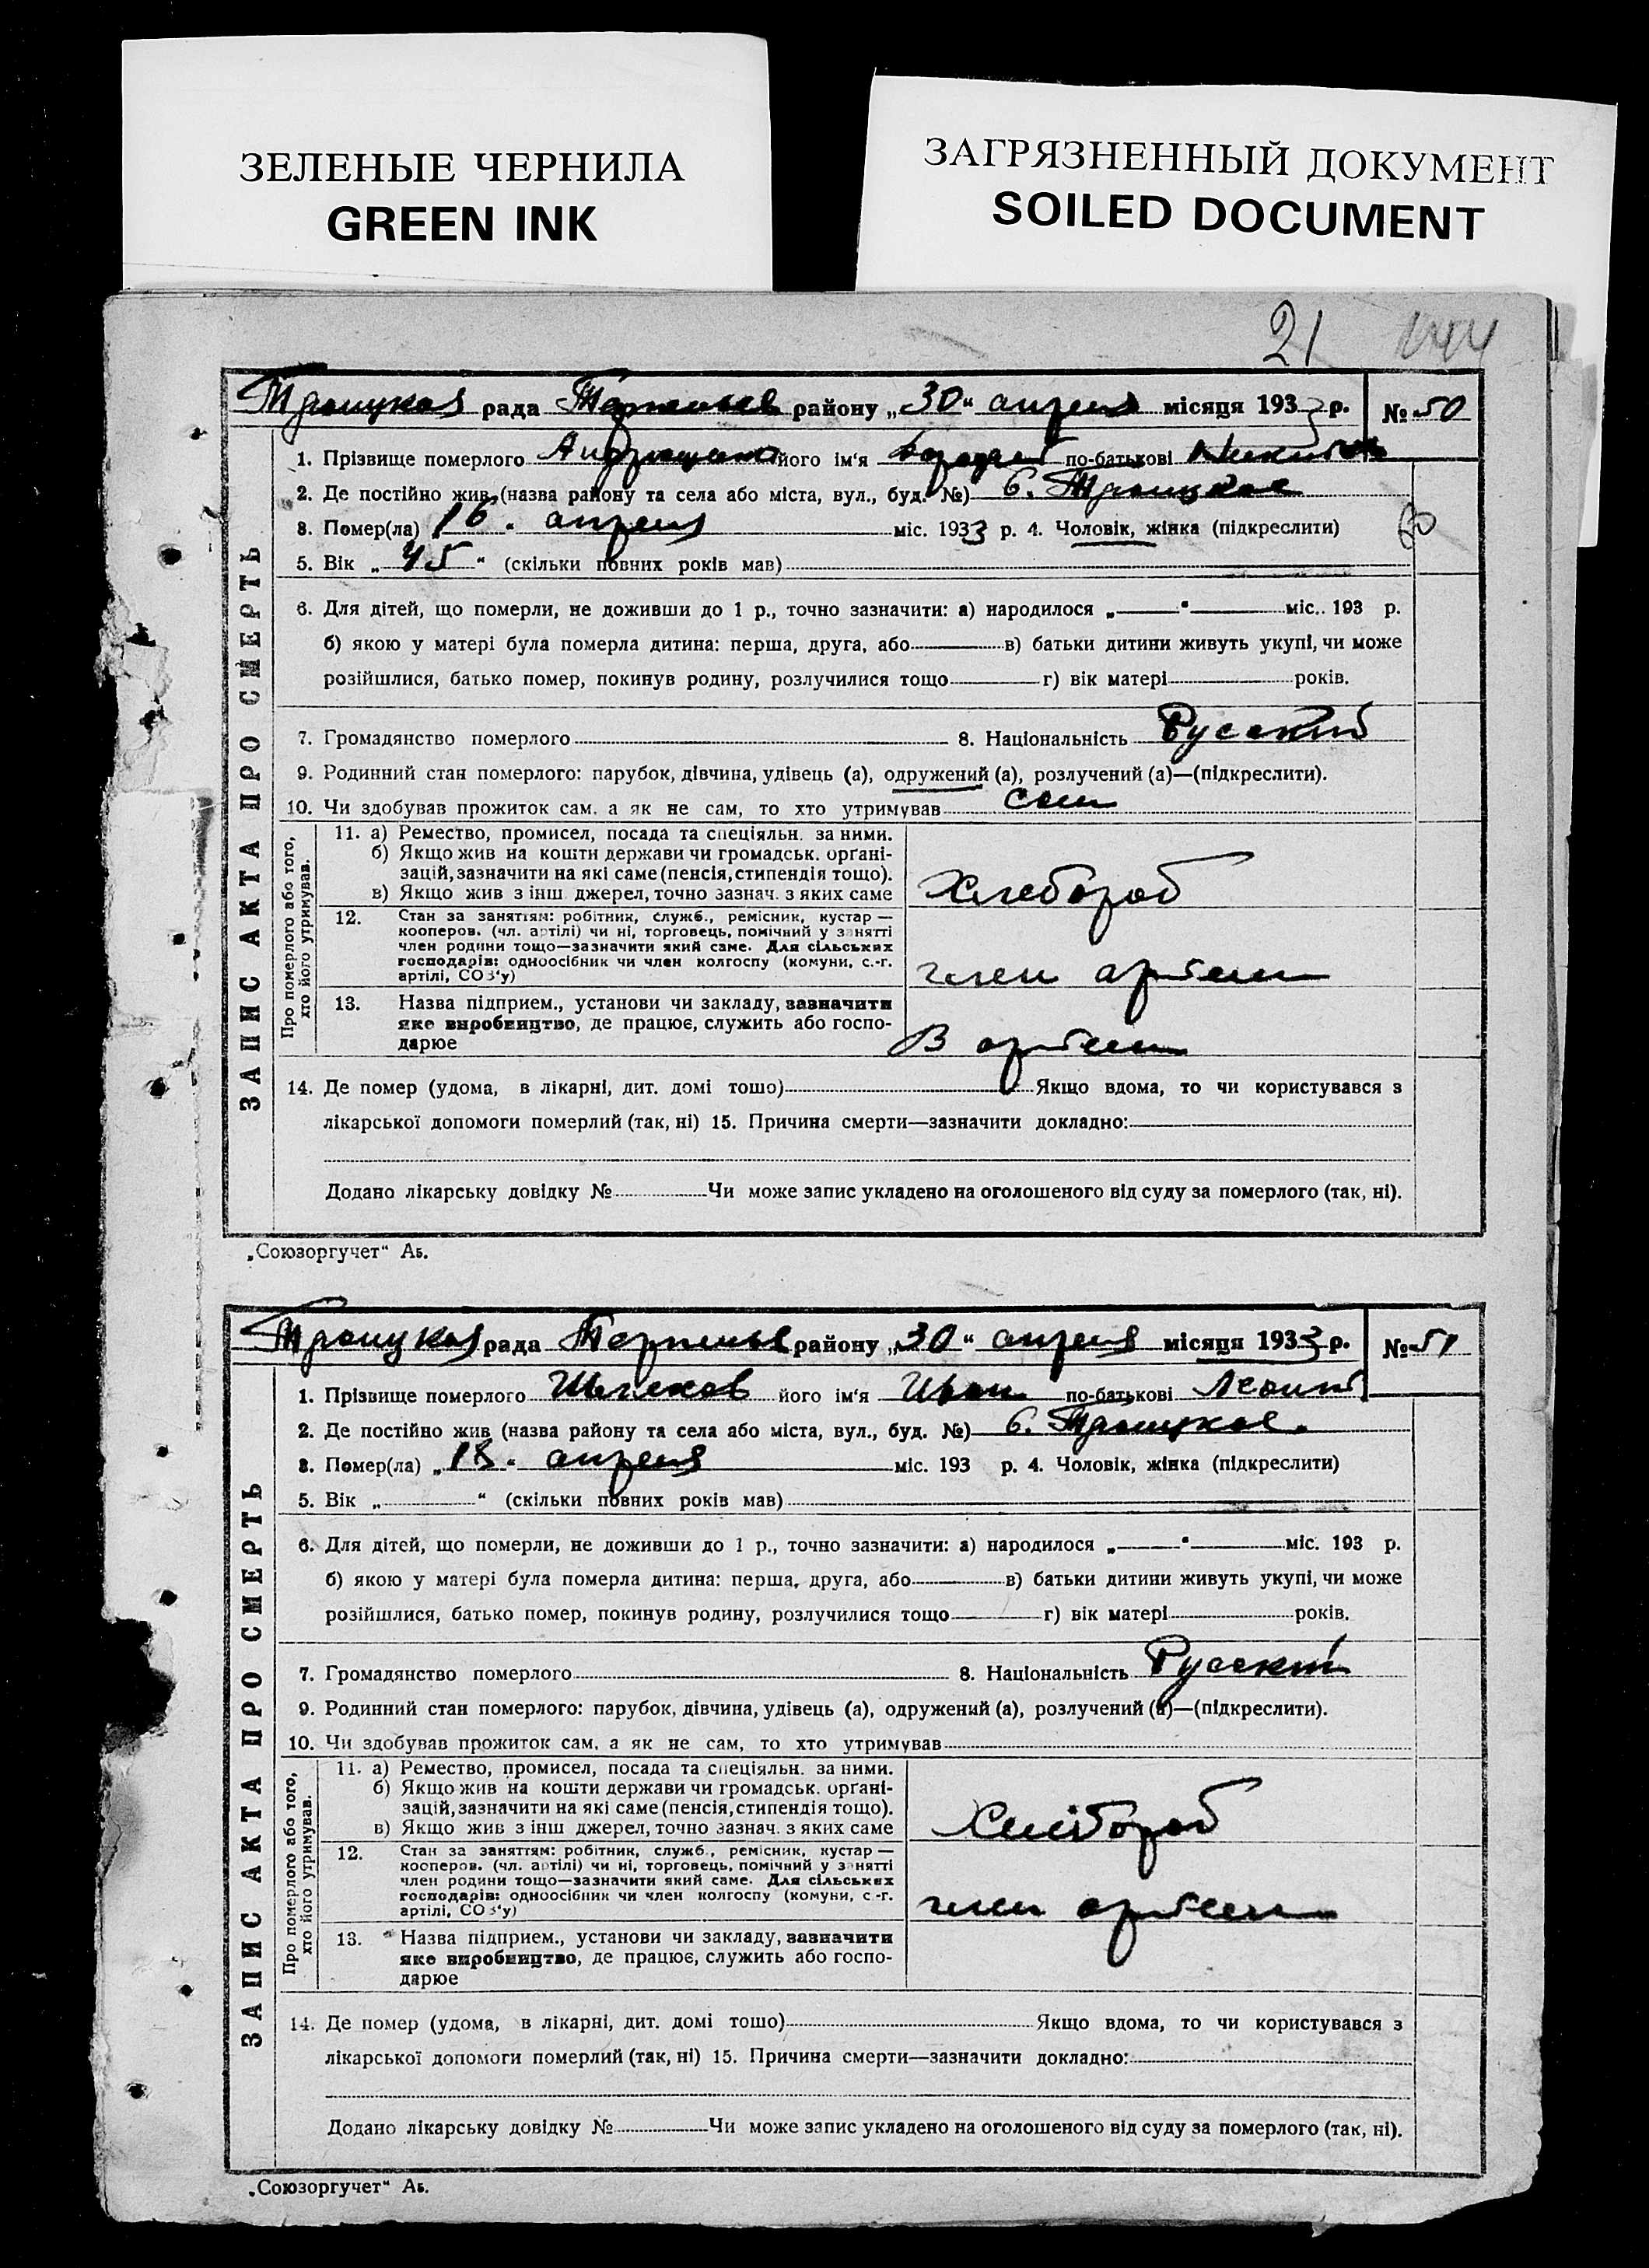 ЗЕЛЕНЫЕ ЧЕРНИЛА
GREEN INK
ЗАГРЯЗНЕННЫЙ ДОКУМЕНТ
SOILED DOCUMENT
21 144
Троицкая рада району „30“ апреля місяця 1933 р. № 50
ЗАПИС АКТА ПРО СМЕРТЬ
1. Прізвище померлого його ім'я по-батькові
2. Де постійно жив (назва району та села або міста, вул., буд. №) с. Троицкое
3. Помер(ла) 16. апреля міс. 1933 р. 4. Чоловік, жінка (підкреслити)
5. Вік „45“ (скільки повних років мав)
6. Для дітей, що померли, не доживши до 1 р., точно зазначити: а) народилося „ “ міс.. 193 р.
б) якою у матері була померла дитина: перша, друга, або в) батьки дитини живуть укупі, чи може
розійшлися, батько помер, покинув родину, розлучилися тощо г) вік матері років.
7. Громадянство померлого 8. Національність Русский
9. Родинний стан померлого: парубок, дівчина, удівець (а), одружений (а), розлучений (а)—(підкреслити).
10. Чи здобував прожиток сам, а як не сам, то хто утримував сам
Про померлого або того, хто його утримував.
11. а) Ремество, промисел, посада та спеціяльн. за ними.
б) Якщо жив на кошти держави чи громадськ. органі-
зацій, зазначити на які саме (пенсія, стипендія тощо).
в) Якщо жив з інш джерел, точно зазнач. з яких саме
Хлебороб
12. Стан за заняттям: робітник, служб., ремісник, кустар —
кооперов. (чл. артілі) чи ні, торговець, помічний у занятті
член родини тощо—зазначити який саме. Для сільських
господарів: одноосібник чи член колгоспу (комуни, с.-г.
артілі, СОЗ'у)
член артели
13. Назва підприєм., установи чи закладу, зазначити
яке виробництво, де працює, служить або госпо-
дарює
В артели
14. Де помер (удома, в лікарні, дит. домі тощо) Якщо вдома, то чи користувався з
лікарської допомоги померлий (так, ні) 15. Причина смерти—зазначити докладно:
Додано лікарську довідку № Чи може запис укладено на оголошеного від суду за померлого (так, ні).
„Союзоргучет“ Аь.
Троицкая рада району „30“ апреля місяця 1933 р. № 51
ЗАПИС АКТА ПРО СМЕРТЬ
1. Прізвище померлого його ім'я Иван по-батькові
2. Де постійно жив (назва району та села або міста, вул., буд. №) с. Троицкое.
3. Помер(ла) „18. апреля міс. 193 р. 4. Чоловік, жінка (підкреслити)
5. Вік „ “ (скільки повних років мав)
6. Для дітей, що померли, не доживши до 1 р., точно зазначити: а) народилося „ “ міс. 193 р.
б) якою у матері була померла дитина: перша, друга, або в) батьки дитини живуть укупі, чи може
розійшлися, батько помер, покинув родину, розлучилися тощо г) вік матері років.
7. Громадянство померлого 8. Національність Русский
9. Родинний стан померлого: парубок, дівчина, удівець (а), одружений (а), розлучений (а)—(підкреслити).
10. Чи здобував прожиток сам, а як не сам, то хто утримував
Про померлого або того, хто його утримував.
11. а) Ремество, промисел, посада та спеціяльн. за ними.
б) Якщо жив на кошти держави чи громадськ. органі-
зацій, зазначити на які саме (пенсія, стипендія тощо).
в) Якщо жив з інш джерел, точно зазнач. з яких саме
Хлебороб
12. Стан за заняттям: робітник, служб., ремісник, кустар —
кооперов. (чл. артілі) чи ні, торговець, помічний у занятті
член родини тощо—зазначити який саме. Для сільських
господарів: одноосібник чи член колгоспу (комуни, с-г.
артілі, СОЗ'у)
член артели
13. Назва підприєм., установи чи закладу, зазначити
яке виробництво, де працює, служить або госпо-
дарює
14. Де помер (удома, в лікарні, дит. домі тощо) Якщо вдома, то чи користувався з
лікарської допомоги померлий (так, ні) 15. Причина смерти—зазначити докладно:
Додано лікарську довідку № Чи може запис укладено на оголошеного від суду за померлого (так, ні).
„Союзоргучет“ Аь.